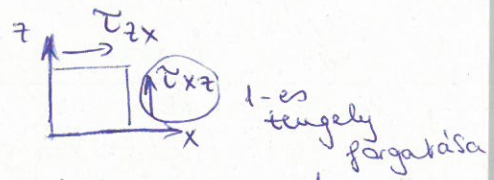 z τzx
τxz
x
1-es
tengely
forgatása